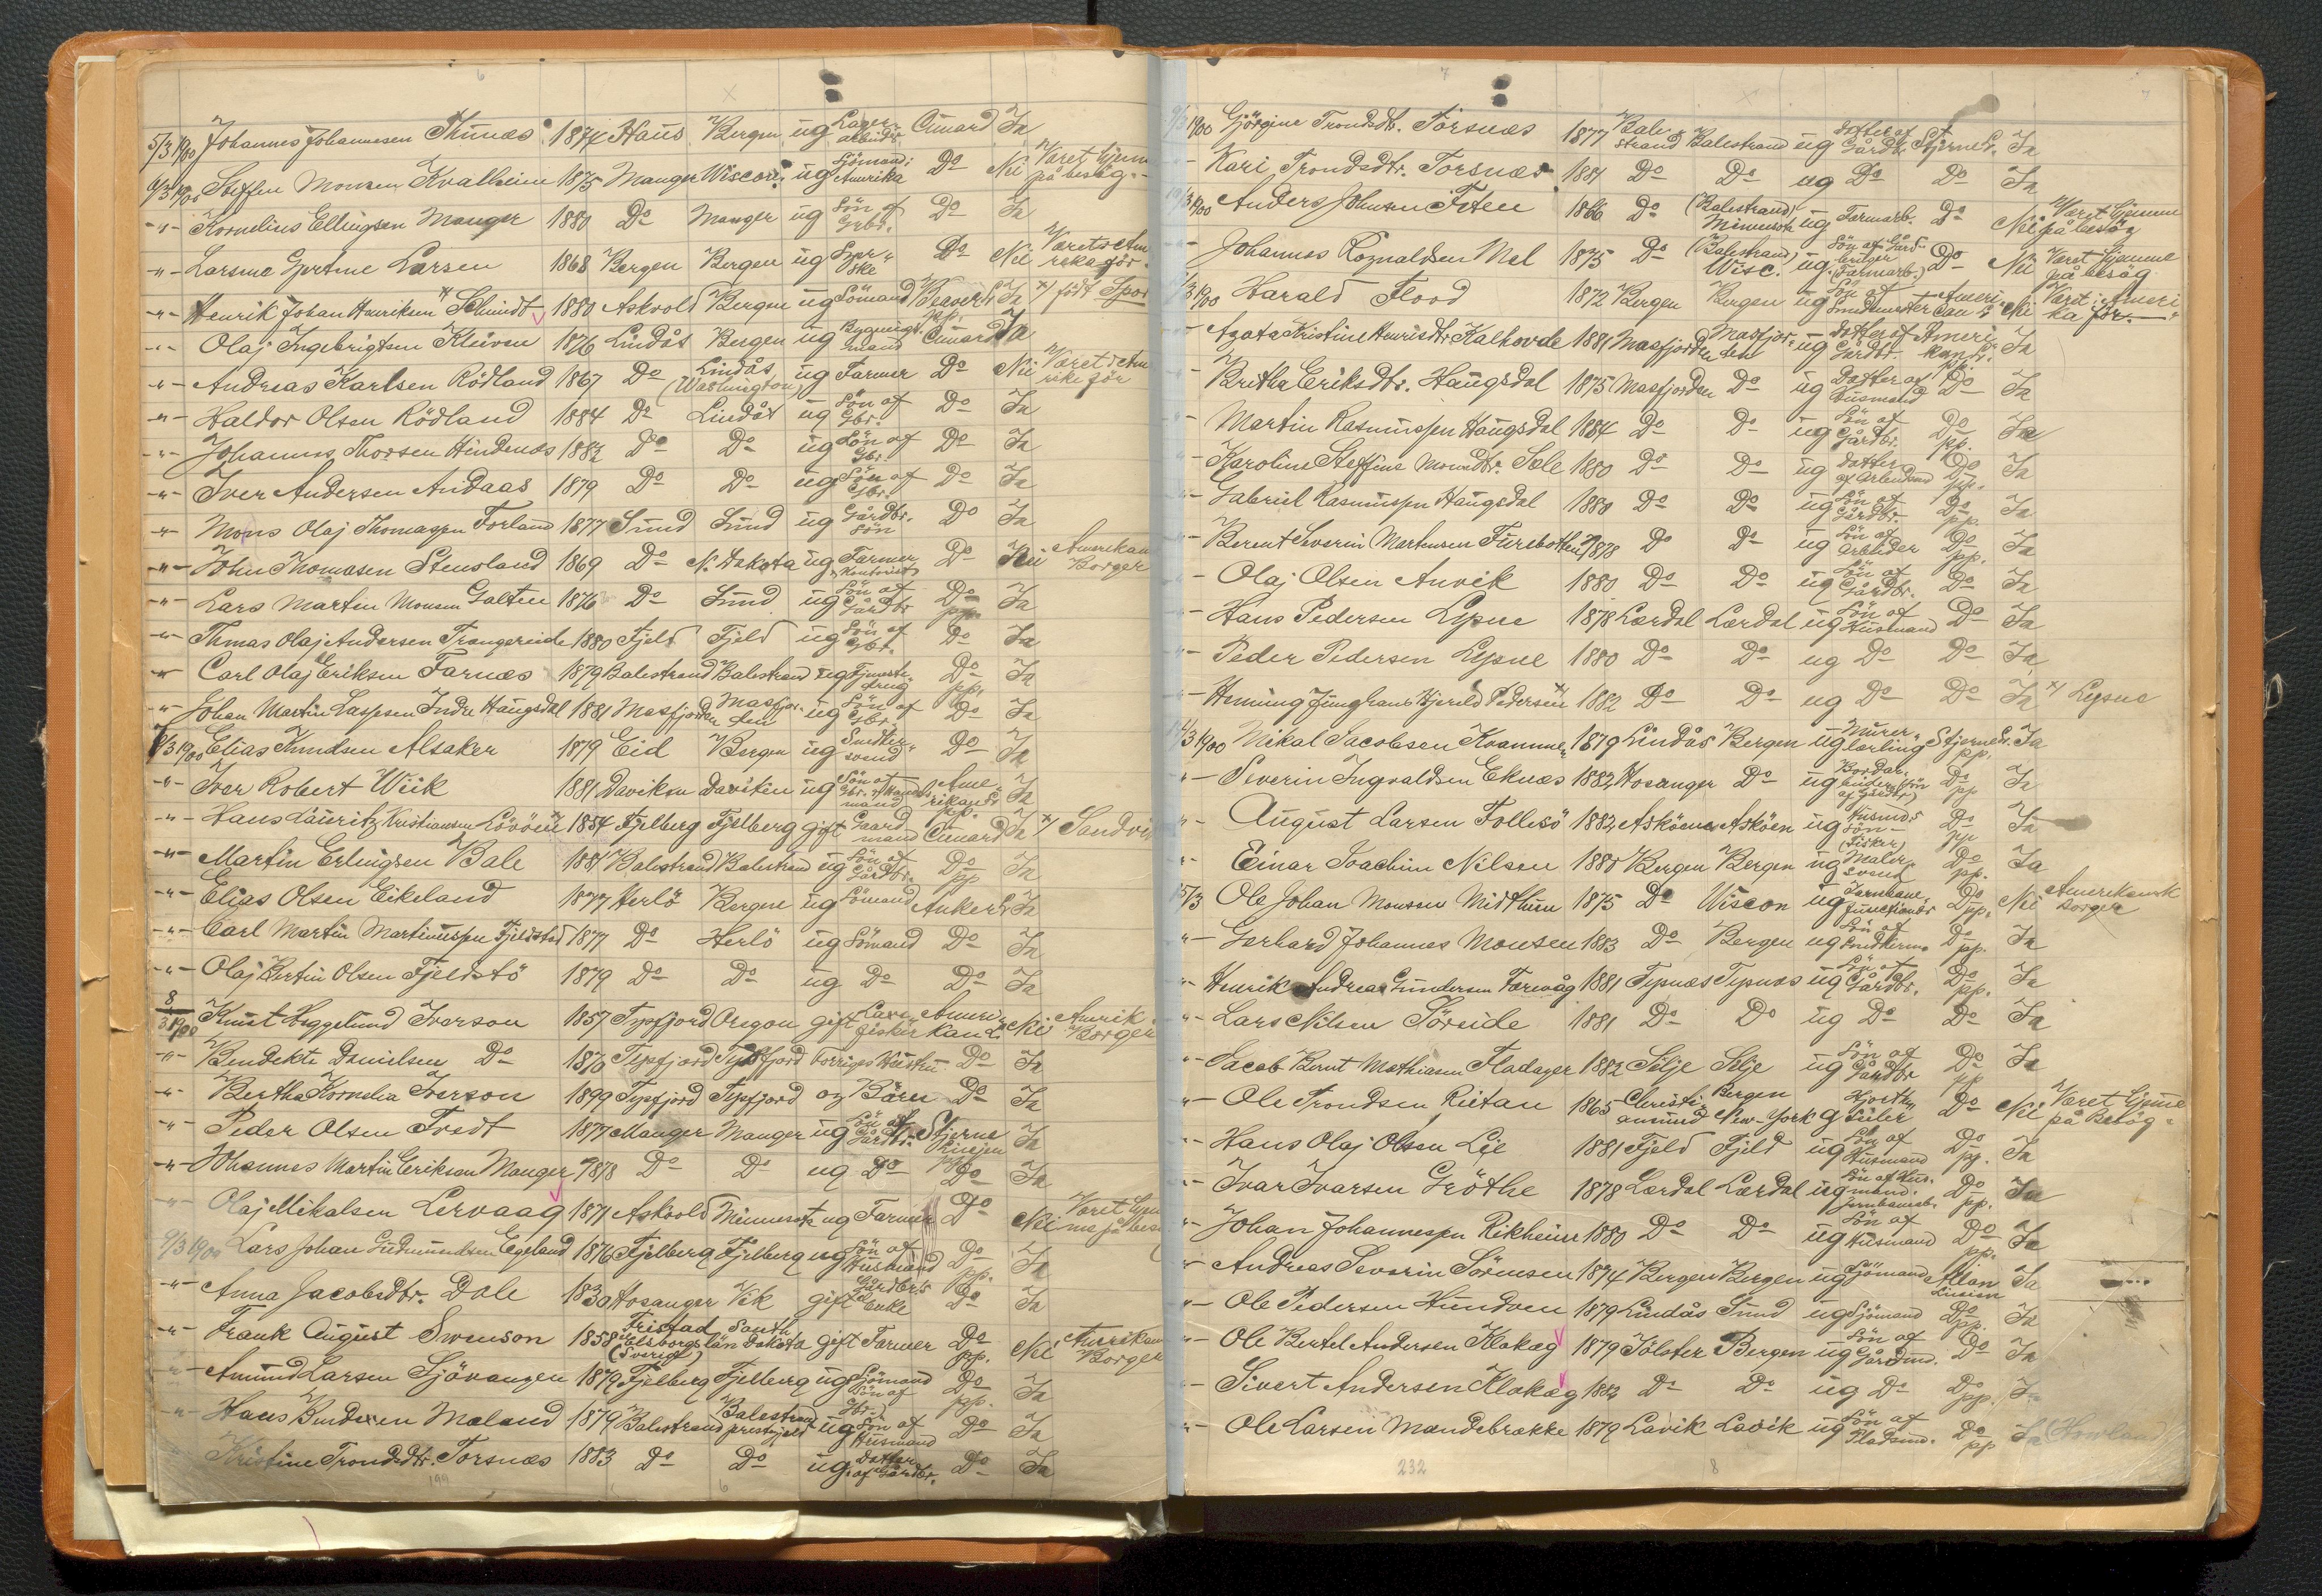 5/3 1900 Johannes Johannesen Thunæs 1874 Haus Bergen ug Lager-arbeider Cunard Ja
6/3 1900 Steffen Monsen Kvalheim 1875 Manger Wiscon. ug Sömand i Amerika Do Nei Været hjem på besög.
-"- Kornelius Ellingsen Manger 1880 Do Manger ug Sön af Grbr. Do Ja
-"- Larsine Gjertine Larsen 1868 Bergen Bergen ug Do Nei Været i Amerika för
-"- Henrik Johan Henriksen x Schmidt 1880 Askvold Bergen ug Sömand Beaver L. Ja x) födt Spor
-"- Olaj Ingebrigtsen Kleiven 1876 Lindås Bergen ug Bygnings-mand pp. Cunard Ja
-"- Andreas Karlsen Rödland 1867 Do Lindås (Washington) ug Farmer Do Nei Været i Amerika för
-"- Haldor Olsen Rödland 1884 Do Lindås ug Sön af Gbr. Do Ja
-"- Johannes Thorsen Hindenæs 1882 Do Do ug Sön af Gbr. Do Ja
-"- Iver Andersen Andaas 1879 Do Do ug Sön af Gbr. Do Ja
-"- Mons Olaj Thomassen Forland 1877 Sund Sund ug Gårdbr. Sön Do Ja
-"- John Thomasen Stensland 1869 Do N. Dakota ug Farmer, Kontorist Do Nei Amerikan Borger
-"- Lars Martin Monsen Golten 1876 Do Sund ug Sön af Gårdbr Do pp. Ja
-"- Thmas Olaj Andersen Trangereide 1880 Fjeld Fjeld ug Sön af Gbr. Do Ja
-"- Carl Olaj Eriksen Farnæs 1879 Balestrand Balestrand ug Tjeneste-dreng Do pp. Ja
-"- Johan Martin Lassesen Indre Haugsdal 1881 Masfjorden Masfjorden ug Sön af Gbr. Do Ja
8/3 1900 Elias Knudsen Alsaker 1879 Eid Bergen ug Smedsvend Do Ja
-"- Ivar Robert Wiik 1881 Daviken Daviken ug Sön af Gbr. & Handelsmand Amerikan L. pp. Ja
-"- Hans Lauritz Kristiansen Lövöen x 1854 Fjelberg Fjelberg gift Gaardmand Cunard Ja x) Sandvi
-"- Martin Erlingsen Bale 1881 Balestrand Balestrand ug Sön af Gårdbr. Do pp Ja
-"- Elias Olsen Eikeland 1877 Herlö Bergen ug Sömand Anker L. Ja
-"- Carl Martin Martinussen Fjeldstad 1877 Do Herlö ug Sömand Do Ja
-"- Olaj Bertin Olsen Fjeldstö 1879 Do Do ug Do Do Ja
8/3 1900 Knut Heggelund Iverson 1857 Tysfjord Oregon gift Laxefisker Amerikan L. Nei Amerik. Borger
-"- Bendekte Danielsen Do 1870 Tysfjord Tysfjord forriges Hustru Do Ja
-"- Bertha Kornelia Iverson 1899 Tysfjord Tysfjord og Børn Do Ja
-"- Peder Olsen Tvedt 1877 Manger Manger ug Sön af Gårdbr. Stjerne Linjen Ja
-"- Johannes Martin Eriksen Manger 1878 Do Do ug Do pp Do Ja
-"- Olaj Mikalsen Lervaag 1871 Askvold Minnesota ug Farmer Do Nei Været hjemme på besö
9/3 1900 Lars Johan Gudmundsen Egeland 1876 Fjelberg Fjelberg ug Sön af Husmand Do pp. Ja
-"- Anna Jacobsdtr. Dale 1830 Hosanger Vik gift Gårdbr's Enke Do Ja
-"- Frank August Swenson 1858 Fristad Elfsborgslän (Sverige) South Dakota gift Farmer Do pp. Nei Amerikan Borger
-"- Amund Larsen Sjövangen 1879 Fjelberg Fjelberg ug Sjömand Sön af Gbr.) Do pp. Ja
-"- Hans Bendixen Meland 1879 Balestrand Balestrand prestegjeld ug Sön af Husmand Do Ja
Kristine Trondsdtr. Torsnæs 1883 Do Do ug Datter af Gårdbr. Do Ja
199
9/3 1900 Gjörgine Trondsdtr. Torsnæs 1877 Balestrand Balestrand ug datter af Gårdbr. Stjerne L. Ja
- Kari Trondsdtr. Torsnæs 1881 Do Do ug Do Do Ja
/3 1900 Anders Johnsen Feten 1866 Do (Balestrand) Minnesota ug Farmarb. Do Nei Været hjemme på besög
- Johannes Rognaldsen Mel 1875 Do (Balestrand) Wisc. ug Sön af Gårdbruger (Farmarb.) Do Nei Været hjemme på besög
/3 1900 Harald Flood 1872 Bergen Bergen ug Sön af Smedmester Amerikan L. Nei Været i Amerika för
- Agata Kristine Henriksdtr Kalhovde 1881 Masfjorden Masfjorden ug datter af Gårdbr. Amerikan L. pp. Ja
- Britha Eriksdtr. Haugsdal 1875 Masfjorden Do ug Datter af Husmand Do Ja
- Martin Rasmussen Haugsdal 1884 Do Do ug Sön af Gårdbr. Do pp. Ja
- Karoline Steffine Monsdtr. Sole 1880 Do Do ug datter af Arbeidsmd Do pp. Ja
-"- Gabriel Rasmussen Haugsdal 1880 Do Do ug Sön af Gårdbr. Do pp. Ja
- Berent Severin Martensen Furebotten 1878 Do Do ug Sön af Arbeider Do pp. Ja
- Olaj Olsen Anvik 1880 Do Do ug Sön af Gårdbr. Do Ja
- Hans Pedersen Lysne 1878 Lærdal Lærdal ug Sön af Husmand Do Ja
- Peder Pedersen Lysne 1880 Do Do ug Do Do Ja
- Henning Junghans Hjerild Pedersen x 1882 Do Do ug Do Do Ja x) Lysne
14/3 1900 Mikal Jacobsen Kvamme 1879 Lindås Bergen ug Murer-lærling Stjerne L. pp. Ja
"- Severin Ingvaldsen Eknæs 1882 Hosanger Do ug (Sön af Gårdbr) Do pp Ja
"- August Larsen Follesö 1882 Asköen Asköen ug Husmds Sön - (Fisker) Do pp Ja
"- Einar Joachim Nilsen 1880 Bergen Bergen ug Malersvend Do pp. Ja
15/3 Ole Johan Monsen Midthun 1875 Do Wiscon ug Jernbanefunctionær Do pp. Nei Amerikansk borger
"- Gerhard Johannes Monsen 1883 Do Bergen ug Sön af Do pp. Ja
"- Henrik Andreas Gundersen Torevåg 1881 Tysnæs Tysnæs ug Sön af Gårdbr. Do pp. Ja
"- Lars Nilsen Söreide 1881 Do Do ug Do Do Ja
"- Jacob Bernt Mathiasen Fladager 1882 Selje Selje ug Sön af Gårdbr Do pp Ja
"- Ole Trondsen Reitan 1865 Christiansund Bergen New-York g Do Nei Været hjemme på Besög
"- Hans Olaj Olsen Lie 1881 Fjeld Fjeld ug Sön af Husmand Do pp. Ja
"- Ivar Ivarsen Gröthe 1878 Lærdal Lærdal ug Sön af Husmand. Jernbanearb. Do pp. Ja
"- Johan Johannessen Rikheim 1880 Do Do ug Sön af Husmand Do pp. Ja
"- Andreas Severin Sörensen 1874 Bergen Bergen ug Sjömand Allan Linien Ja
"- Ole Pedersen Hundven 1879 Lindås Sund ug Sjömand Do pp. Ja
"- Ole Bertel Andersen Klakeg 1879 Jölster Bergen ug Sön af Gårdmd. Do Ja
"- Sivert Andersen Klakeg 1882 Do Do ug Do Do pp. Ja
"- Ole Larsen Mandebrække 1879 Lavik Lavik ug Sön af Pladsmd. Do pp Ja (Howland
232 8